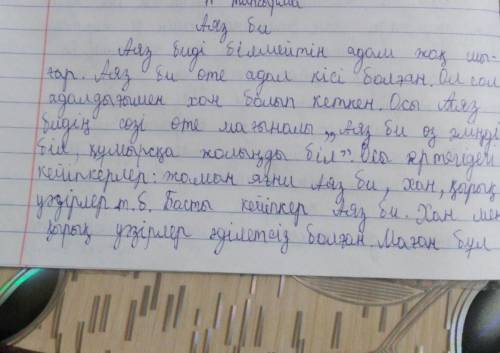 тапсырма
Аяз би
Аяз биді білмейтін адам жоқ шы-
ғар. Аяз би өте адал кісі болған. Ол сол
адалдығымен хан болып кеткен. Осы Аяз
бидің сөзі өте мағыналы „Аяз би өз әліңді
біл, құмырсқа жолыңды біл". Осы ертегіден
кейіпкерлер: жаман яғни Аяз би, хан, қырық
уәзірлер т.б. Басты кейіпкер Аяз би. Хан мен
қырық уәзірлер әділетсіз болған. Маған бұл